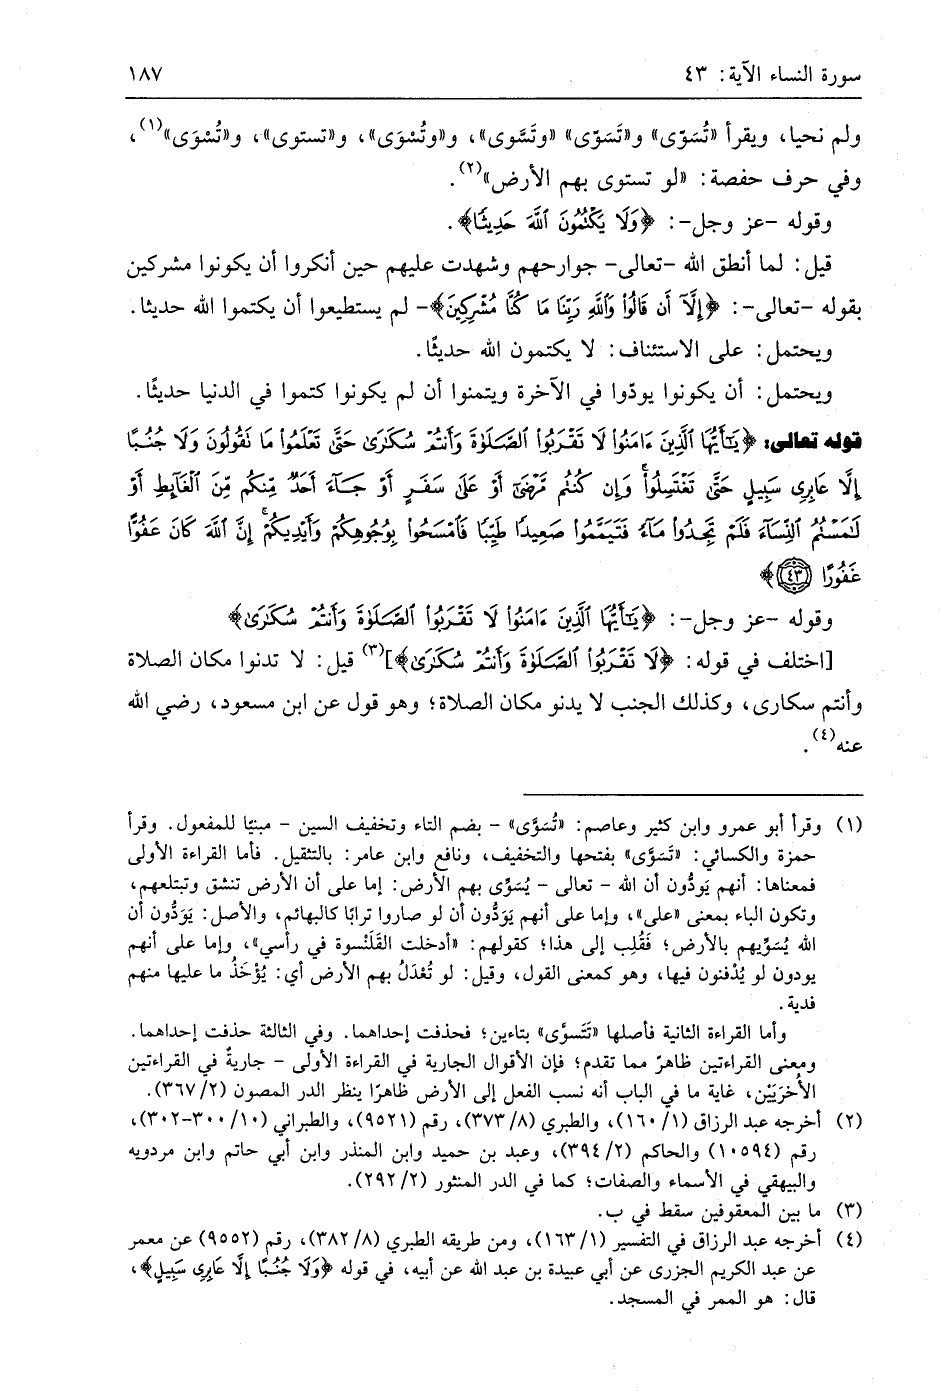 سورة النساء الآية: ٤٣ ١٨٧
ولم نحيا، ويقرأ «تُسَوّى» و«تَسَوّى» «وتَسَّوى»، و«وتُسْوَى»، و«تستوى»، و«تُسْوَى»(١)،
وفي حرف حفصة: «لو تستوى بهم الأرض»(٢).
وقوله -عز وجل-: ﴿وَلَا يَكْتُمُونَ ٱللَّهَ حَدِيثًا﴾.
قيل: لما أنطق الله -تعالى- جوارحهم وشهدت عليهم حين أنكروا أن يكونوا مشركين
بقوله -تعالى-: ﴿إِلَّآ أَن قَالُوا۟ وَٱللَّهِ رَبِّنَا مَا كُنَّا مُشْرِكِينَ﴾- لم يستطيعوا أن يكتموا الله حديثا.
ويحتمل: على الاستئناف: لا يكتمون الله حديثًا.
ويحتمل: أن يكونوا يودّوا في الآخرة ويتمنوا أن لم يكونوا كتموا في الدنيا حديثًا.
قوله تعالى: ﴿يَٰٓأَيُّهَا ٱلَّذِينَ ءَامَنُوا۟ لَا تَقْرَبُوا۟ ٱلصَّلَوٰةَ وَأَنتُمْ سُكَٰرَىٰ حَتَّىٰ تَعْلَمُوا۟ مَا تَقُولُونَ وَلَا جُنُبًا
إِلَّا عَابِرِى سَبِيلٍ حَتَّىٰ تَغْتَسِلُوا۟ ۚ وَإِن كُنتُم مَّرْضَىٰٓ أَوْ عَلَىٰ سَفَرٍ أَوْ جَآءَ أَحَدٌ مِّنكُم مِّنَ ٱلْغَآئِطِ أَوْ
لَٰمَسْتُمُ ٱلنِّسَآءَ فَلَمْ تَجِدُوا۟ مَآءً فَتَيَمَّمُوا۟ صَعِيدًا طَيِّبًا فَٱمْسَحُوا۟ بِوُجُوهِكُمْ وَأَيْدِيكُمْ ۗ إِنَّ ٱللَّهَ كَانَ عَفُوًّا
غَفُورًا ٤٣﴾
وقوله -عز وجل-: ﴿يَٰٓأَيُّهَا ٱلَّذِينَ ءَامَنُوا۟ لَا تَقْرَبُوا۟ ٱلصَّلَوٰةَ وَأَنتُمْ سُكَٰرَىٰ﴾
[اختلف في قوله: ﴿لَا تَقْرَبُوا۟ ٱلصَّلَوٰةَ وَأَنتُمْ سُكَٰرَىٰ﴾](٣) قيل: لا تدنوا مكان الصلاة
وأنتم سكارى، وكذلك الجنب لا يدنو مكان الصلاة؛ وهو قول عن ابن مسعود، رضي الله
عنه(٤).
(١) وقرأ أبو عمرو وابن كثير وعاصم: «تُسَوَّى» - بضم التاء وتخفيف السين - مبنيًا للمفعول. وقرأ
حمزة والكسائي: «تَسَوَّى» بفتحها والتخفيف، ونافع وابن عامر: بالتثقيل. فأما القراءة الأولى
فمعناها: أنهم يَودُّون أن الله - تعالى - يُسَوِّى بهم الأرض: إما على أن الأرض تنشق وتبتلعهم،
وتكون الباء بمعنى «على»، وإما على أنهم يَوَدُّون أن لو صاروا ترابًا كالبهائم، والأصل: يَوَدُّون أن
الله يُسَوِّيهم بالأرض؛ فقُلِب إلى هذا؛ كقولهم: «أدخلت القَلَنْسوة في رأسي»، وإما على أنهم
يودون لو يُدْفنون فيها، وهو كمعنى القول، وقيل: لو تُعْدَلُ بهم الأرض أي: يُؤْخَذُ ما عليها منهم
فدية.
وأما القراءة الثانية فأصلها «تَتَسوَّى» بتاءين؛ فحذفت إحداهما. وفي الثالثة حذفت إحداهما.
ومعنى القراءتين ظاهرٌ مما تقدم؛ فإن الأقوال الجارية في القراءة الأولى - جاريةٌ في القراءتين
الأُخرَيَيْن، غاية ما في الباب أنه نسب الفعل إلى الأرض ظاهرًا ينظر الدر المصون (٢/ ٣٦٧).
(٢) أخرجه عبد الرزاق (١/ ١٦٠)، والطبري (٨/ ٣٧٣)، رقم (٩٥٢١)، والطبراني (١٠/ ٣٠٠-٣٠٢)،
رقم (١٠٥٩٤) والحاكم (٢/ ٣٩٤)، وعبد بن حميد وابن المنذر وابن أبي حاتم وابن مردويه
والبيهقي في الأسماء والصفات؛ كما في الدر المنثور (٢/ ٢٩٢).
(٣) ما بين المعقوفين سقط في ب.
(٤) أخرجه عبد الرزاق في التفسير (١/ ١٦٣)، ومن طريقه الطبري (٨/ ٣٨٢)، رقم (٩٥٥٢) عن معمر
عن عبد الكريم الجزرى عن أبي عبيدة بن عبد الله عن أبيه، في قوله ﴿وَلَا جُنُبًا إِلَّا عَابِرِى سَبِيلٍ﴾،
قال: هو الممر في المسجد.